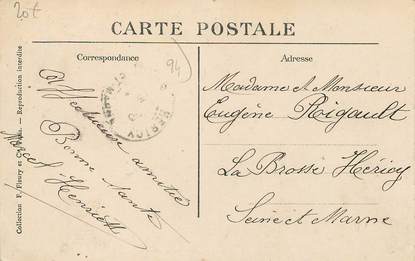 20t
CARTE POSTALE
Correspondance
Adresse
94
Affectueuse amitié
Bonne santé
Marcel Henriette
Madame et Monsieur
Eugène Rigault
La Brosse Héricy
Seine et Marne
Collection F. Fleury et C Reproduction interdite